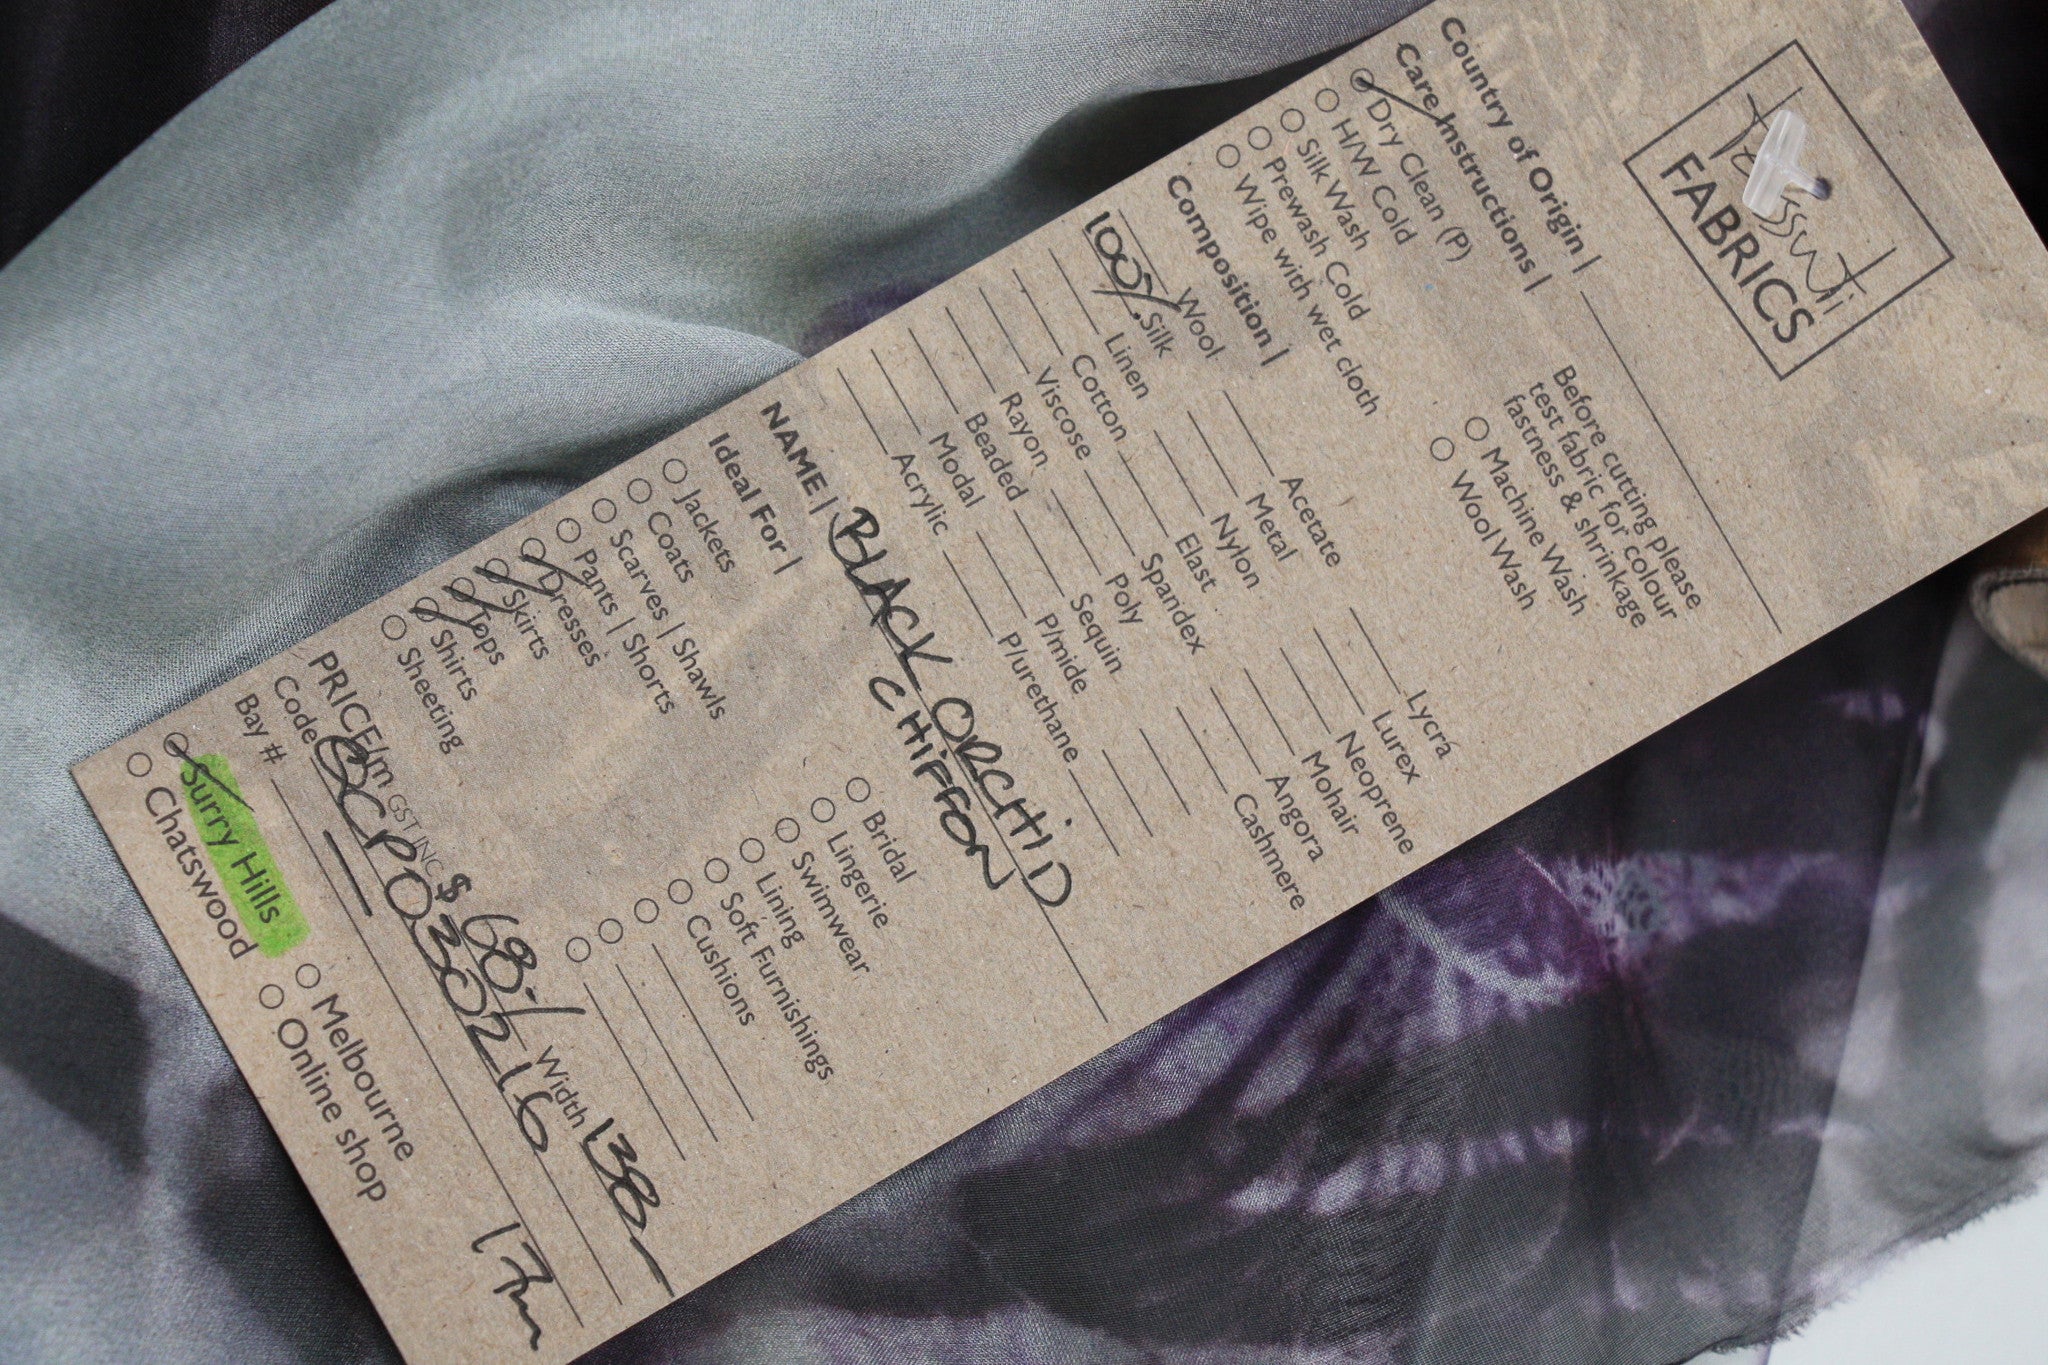 Tessuti
FABRICS
Country of Origin |
Care Instructions |
Dry Clean (P)
H/W Cold
Silk Wash
Prewash Cold
Wipe with wet cloth
Before cutting please
test fabric for colour
fastness & shrinkage
Machine Wash
Wool Wash
Composition |
Wool
100% Silk
Linen
Cotton
Viscose
Rayon
Beaded
Modal
Acrylic
Acetate
Metal
Nylon
Elast
Spandex
Poly
Sequin
P/mide
P/urethane
Lycra
Lurex
Neoprene
Mohair
Angora
Cashmere
NAME | BLACK ORCHID
CHIFFON
Ideal For |
Jackets
Coats
Scarves | Shawls
Pants | Shorts
Dresses
Skirts
Tops
Shirts
Sheeting
Bridal
Lingerie
Swimwear
Lining
Soft Furnishings
Cushions
PRICE/m GST INC $68.- Width 138
Code
Bay # 17m
Surry Hills
Chatswood
Melbourne
Online shop